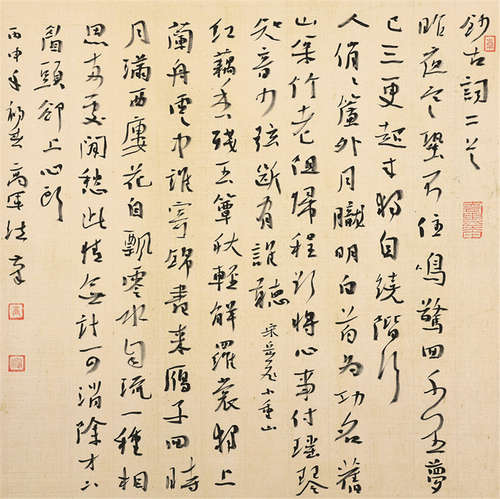 鈔古詞二首
昨夜寒蛩不住鳴驚回千里夢
已三更起來獨自繞階行
人悄悄簾外月朧明白首為功名舊
山松竹老阻歸程欲將心事付瑤琴
知音少弦斷有誰聽 宋岳飛小重山
紅藕香殘玉簟秋輕解羅裳獨上
蘭舟雲中誰寄錦書來雁字回時
月滿西樓花自飄零水自流一種相
思兩處閒愁此情無計可消除才下
眉頭卻上心頭
丙申年初春高軍法